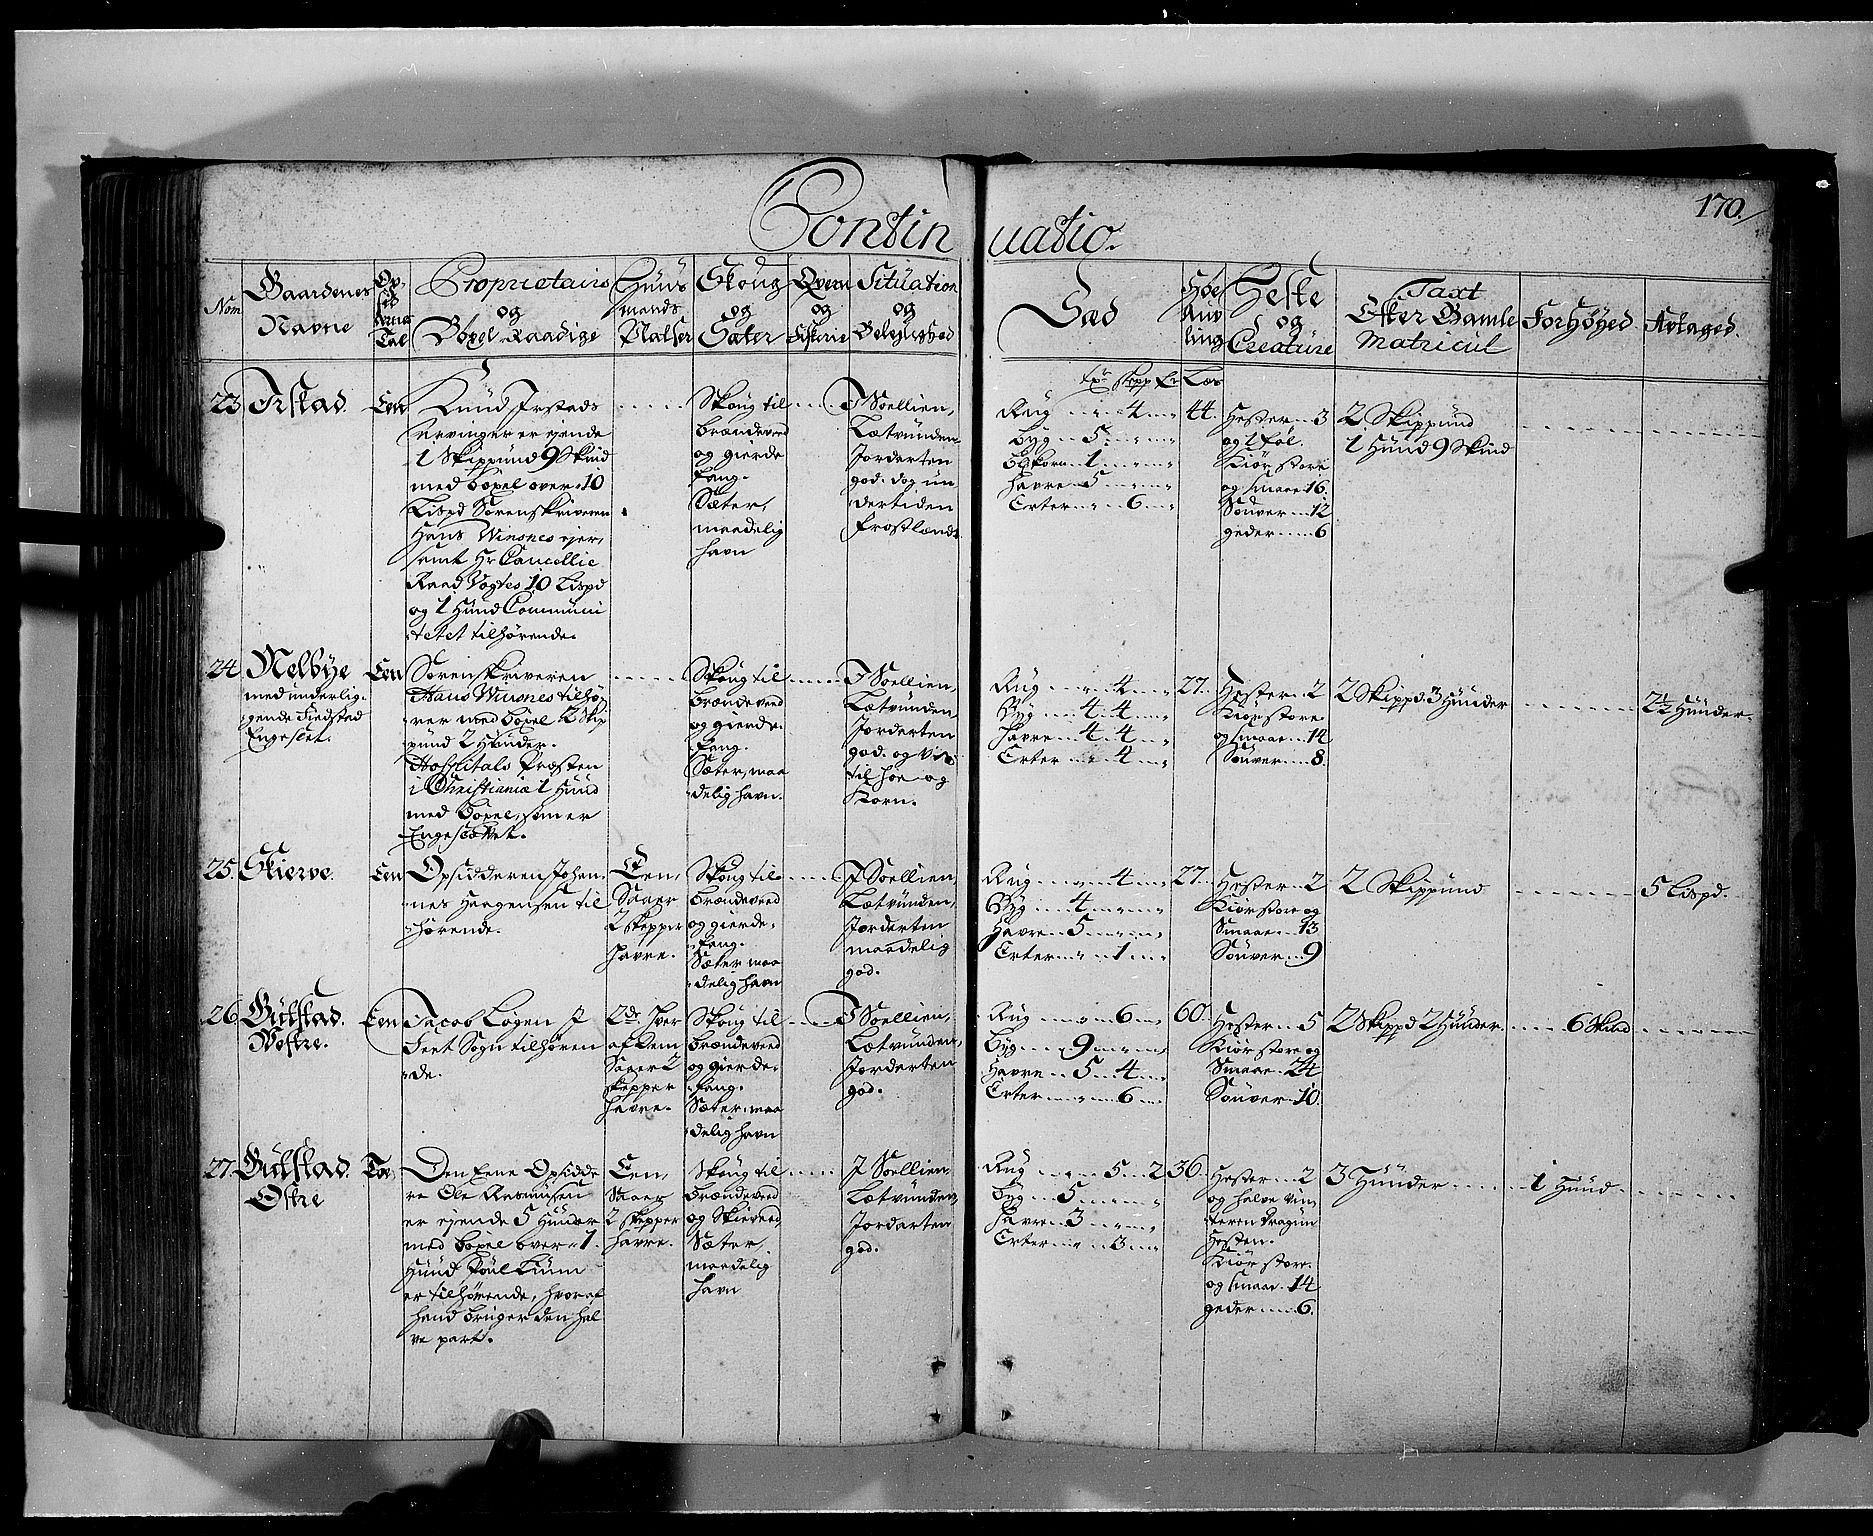 170.
Continuatio.
Nom
Gaardenes
Navne
Op-
sid
dernes
Tal
Proprietairs
og
Boxel Raadige
Huus
mands
Pladser
Skoug
og
Sæter
Qvern
og
Fiskerie
Situation
og
Beleylighed
Sæd
Høe
Auv
ling
Heste
og
Creature
Taxt
Efter Gamle
Matricul
Forhøyed
Aftaged.
23
Irstad.
Een
Knud Irstads
Arvinger er ejende
1 Skippund 9 Skind
med boxel over 10
Lispd Sorenskriveren
Hans Winsnes ejer,
samt Hr Cancellie
Raad Vogtes 10 Lispd
og 1 Hund Communi
tetet tilhørende.
Skoug til
brændeveed
og gierde
fang.
Sæter,
maadelig
havn
I Soellien,
Lætvunden,
Jordarten
god. dog un
dertiden
frostlændt
Tør skepp Fr Læs
Rug 4
Byg 5
Blkorn 1
Havre 5
Erter 6
44.
Hester 3
og 1 føl.
Kiør store
og smaae 16.
Souver 12
geder 6
2 Skippund
1 Hund 9 Skind
24
Melbye
med underlig-
gende Fiedstad
Engeslet.
Een
Sorenskriveren
Hans Winsnes tilhø
rer med boxel 2 Skip
pund 2 Hunder.
Hospitals Præsten
i Christiania 1 Hund
med boxel, som er
Engeslættet.
Skoug til
brændeveed
og gierde-
fang.
Sæter, maa
delig havn.
I Soellien,
Lætvunden
Jordarten
god. og vis
til høe og
Korn.
Rug 4
Byg 4 4
Havre 4 4
Erter 4
27
Hester 2
Kiør store
og smaae 14
Souver 8
2 Skippd. 3 Hunder
2½ Hunder.
25.
Skierve.
Een
Opsidderen Johan-
nes Haagensen til
hørende.
Een,
Saaer
2 skepper
havre.
Skoug til
brændeveed
og gierde-
fang.
Sæter maa
delig havn
I Soellien,
Lætvunden,
Jordarten
maadelig
god.
Rug 4
Byg 4
Havre 5
Erter 1
27
Hester 2
Kiør store og
Smaae 13
Souver 9
2 Skippund
5 Lispd.
26
Gulstad.
Westre.
Een
Jacob Løgen I
Feet Sogn tilhøren
de.
2de. hver
af dem
Saaer 2
skepper
havre.
Skoug til
brændeveed
og gierde-
fang.
Sæter, maa
delig havn
I Soellien,
Lætvunden,
Jordarten
god.
Rug 6
Byg 9
Havre 5 4
Erter 6
60.
Hester 5
Kiør store og
Smaae 24
Souver 10.
2 Skippd 2 Hunder.
6 Skind
27.
Gulstad.
Østre
Toe
Den Eene Opsidde
re Ole Rasmusen
er ejende 5 Hunder
med boxel over 1
Hund Poul Lium
er tilhørende, hvoraf
hand bruger den hal
ve part.
Een,
Saaer
2 skepper
havre.
Skoug til
brændeveed
og Skieveed,
Sæter,
maadelig
havn
I Soellien
Lætvunden,
Jordarten
god.
Rug 5 2
Byg 5
Havre 3
Erter 3
36.
Hester 2
og halve vin
teren Dragun
Hesten.
Kiør store
og smaae 14
geder 6.
3 Hunder
1 Hund